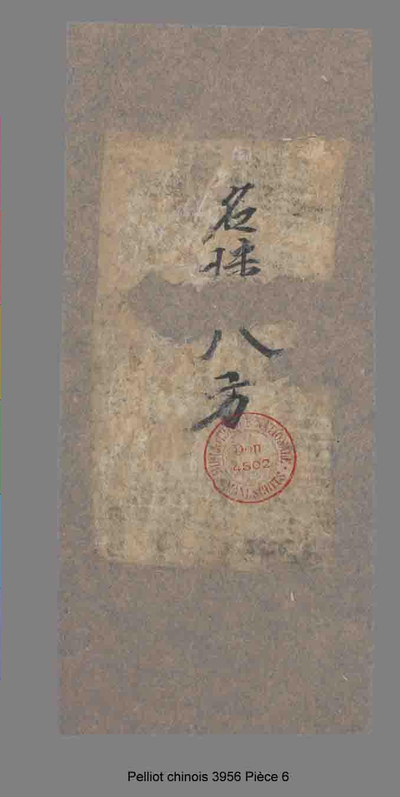 名
八方
BIBLIOTHÈQUE NATIONALE MANUSCRITS
Don
4502
Pelliot chinois 3956 Pièce 6